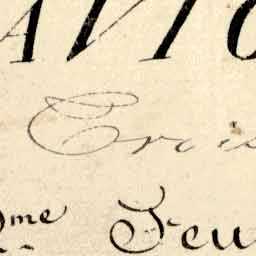 AVIO
Trois
2me Feu